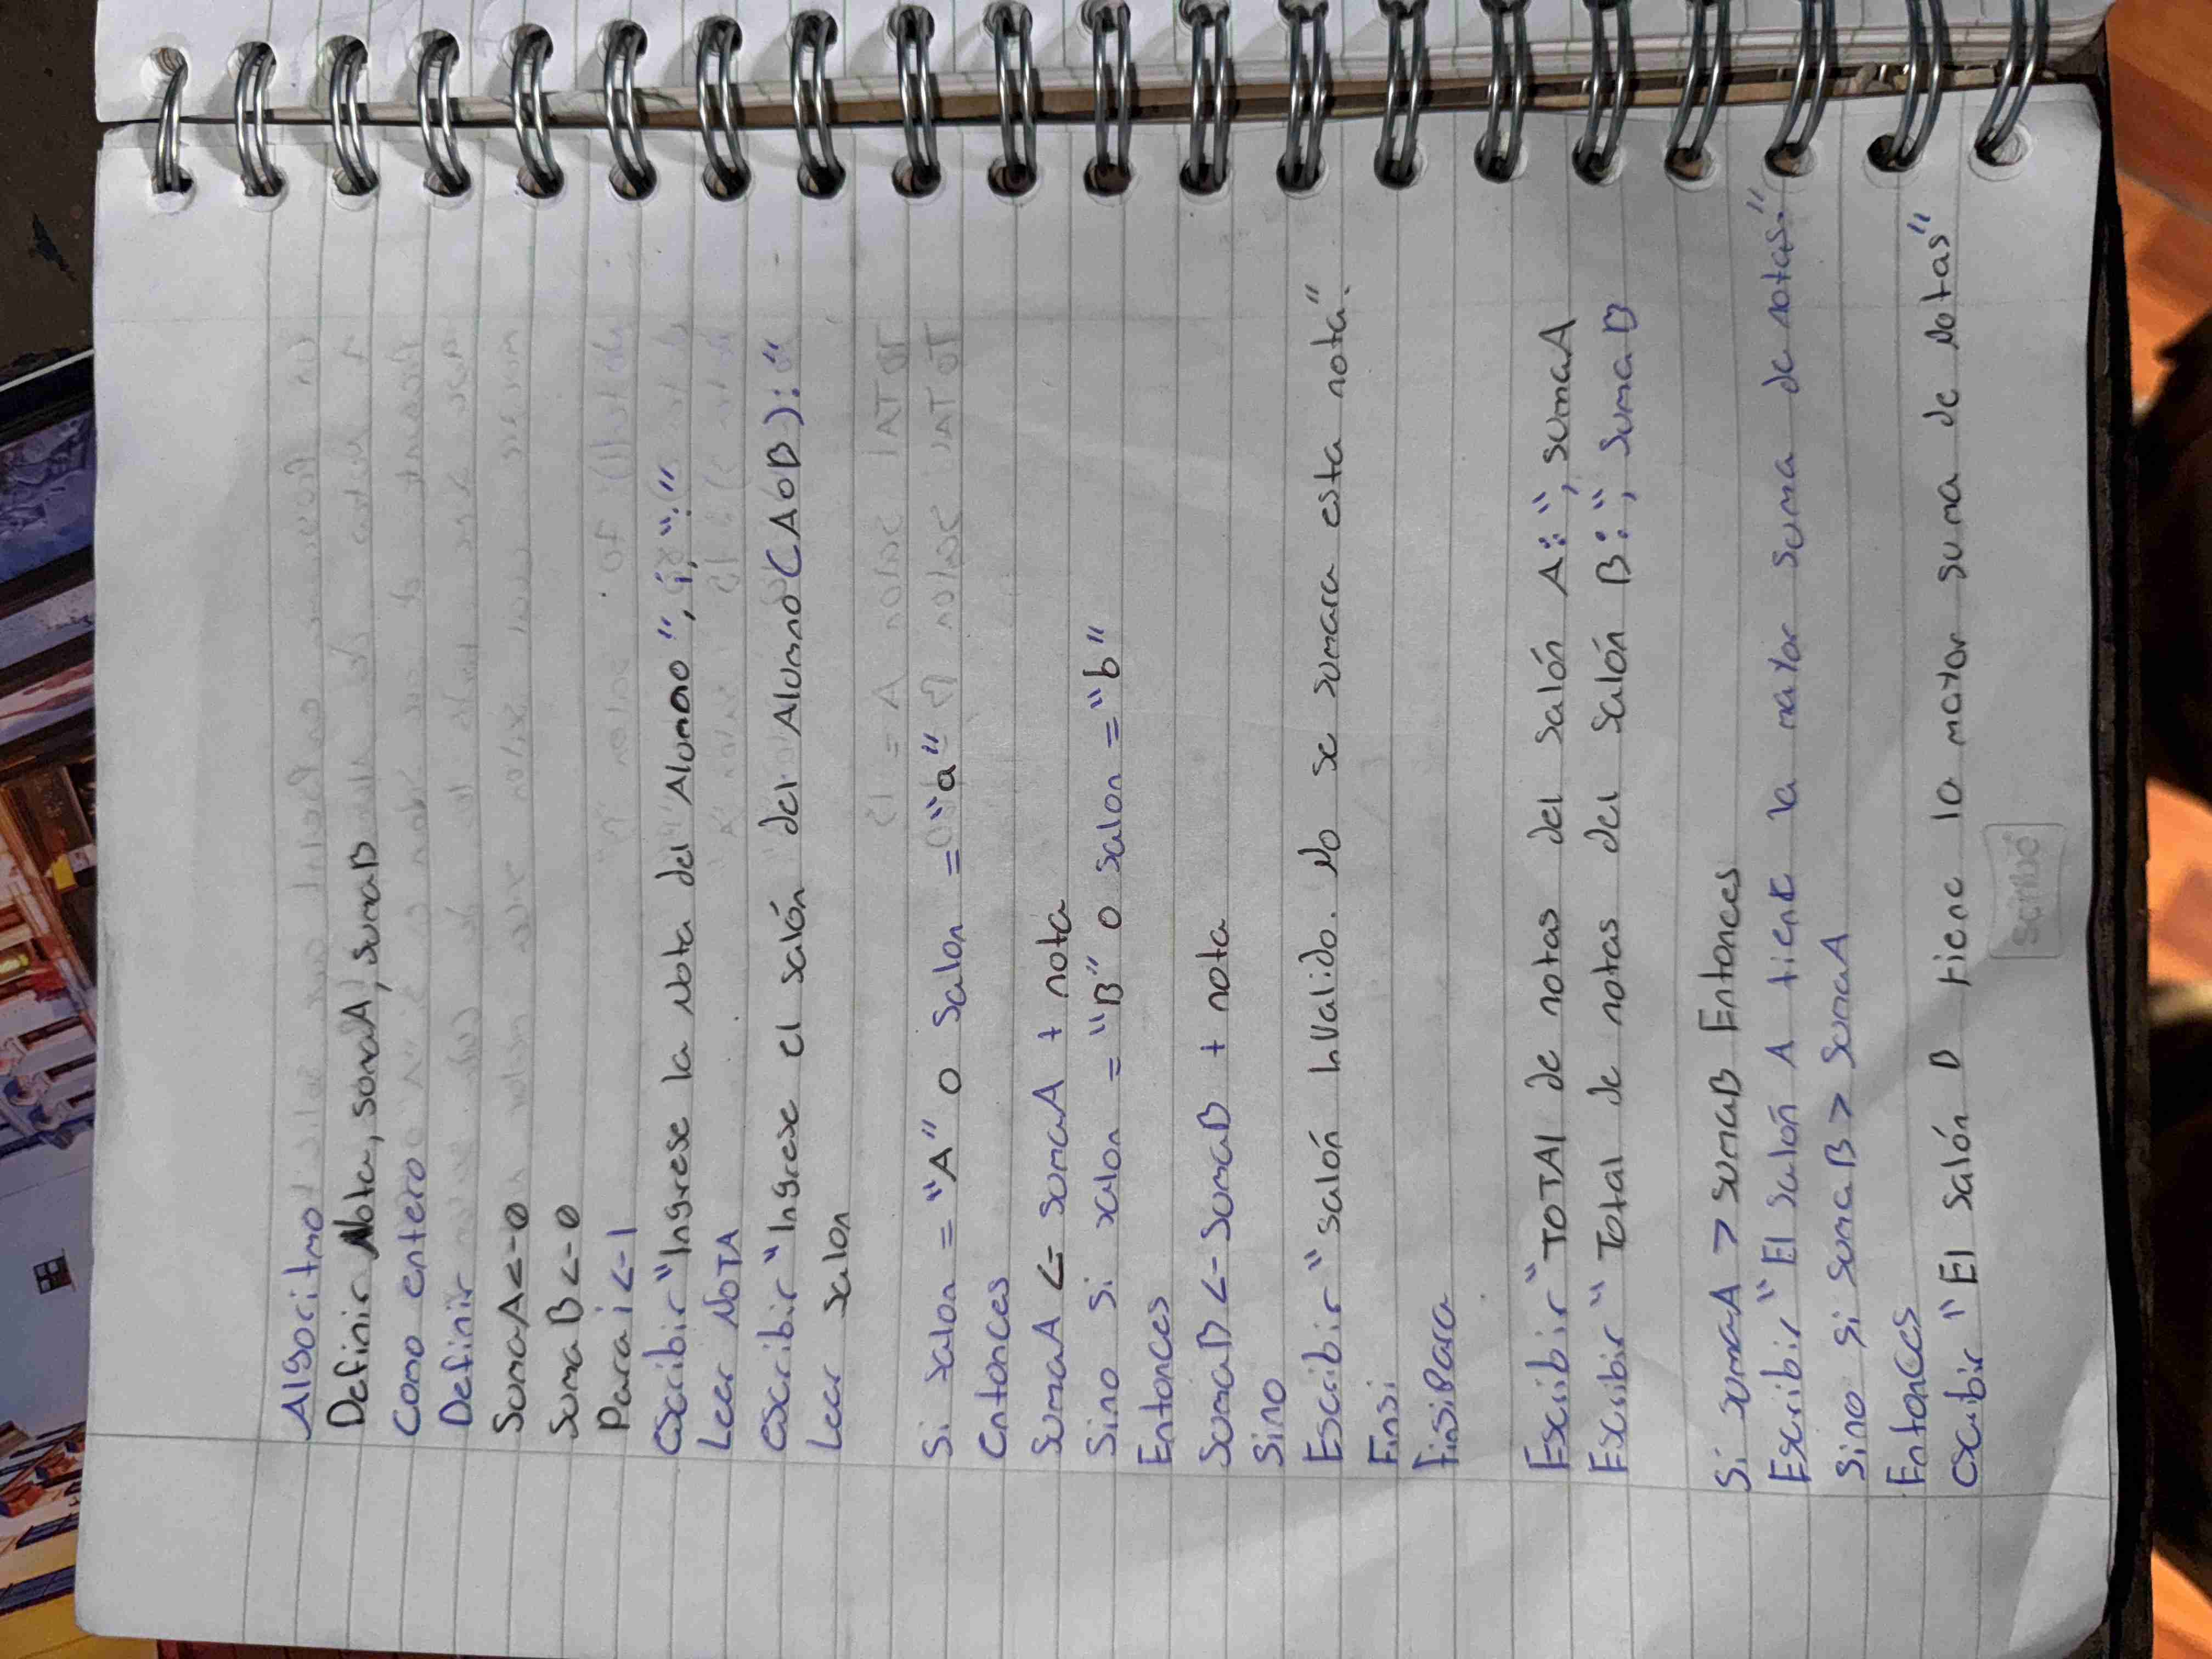 Algoritmo
Definir Nota, sumaA, sumaB
Como entero
Definir
SumaA<-0
SumaB<-0
Para i<-1
Escribir "Ingrese la Nota del Alumno", i, ":"
Leer NOTA
Escribir "Ingrese el salón del Alumno (A o B):"
Leer salon
Si salon = "A" o Salon = "a"
Entonces
SumaA <= sumaA + nota
Sino si salon = "B" o salon = "b"
Entonces
SumaB <- SumaB + nota
Sino
Escribir "salón Invalido. No se sumara esta nota".
Finsi
FinsiPara
Escribir "TOTAl de notas del salón A:", sumaA
Escribir "Total de notas del salón B:", sumaB
Si sumaA > sumaB Entonces
Escribir "El salón A tiene la mayor suma de notas."
Sino si sumaB > SumaA
Entonces
Escribir "El salón B tiene la mayor suma de Notas"
scribe